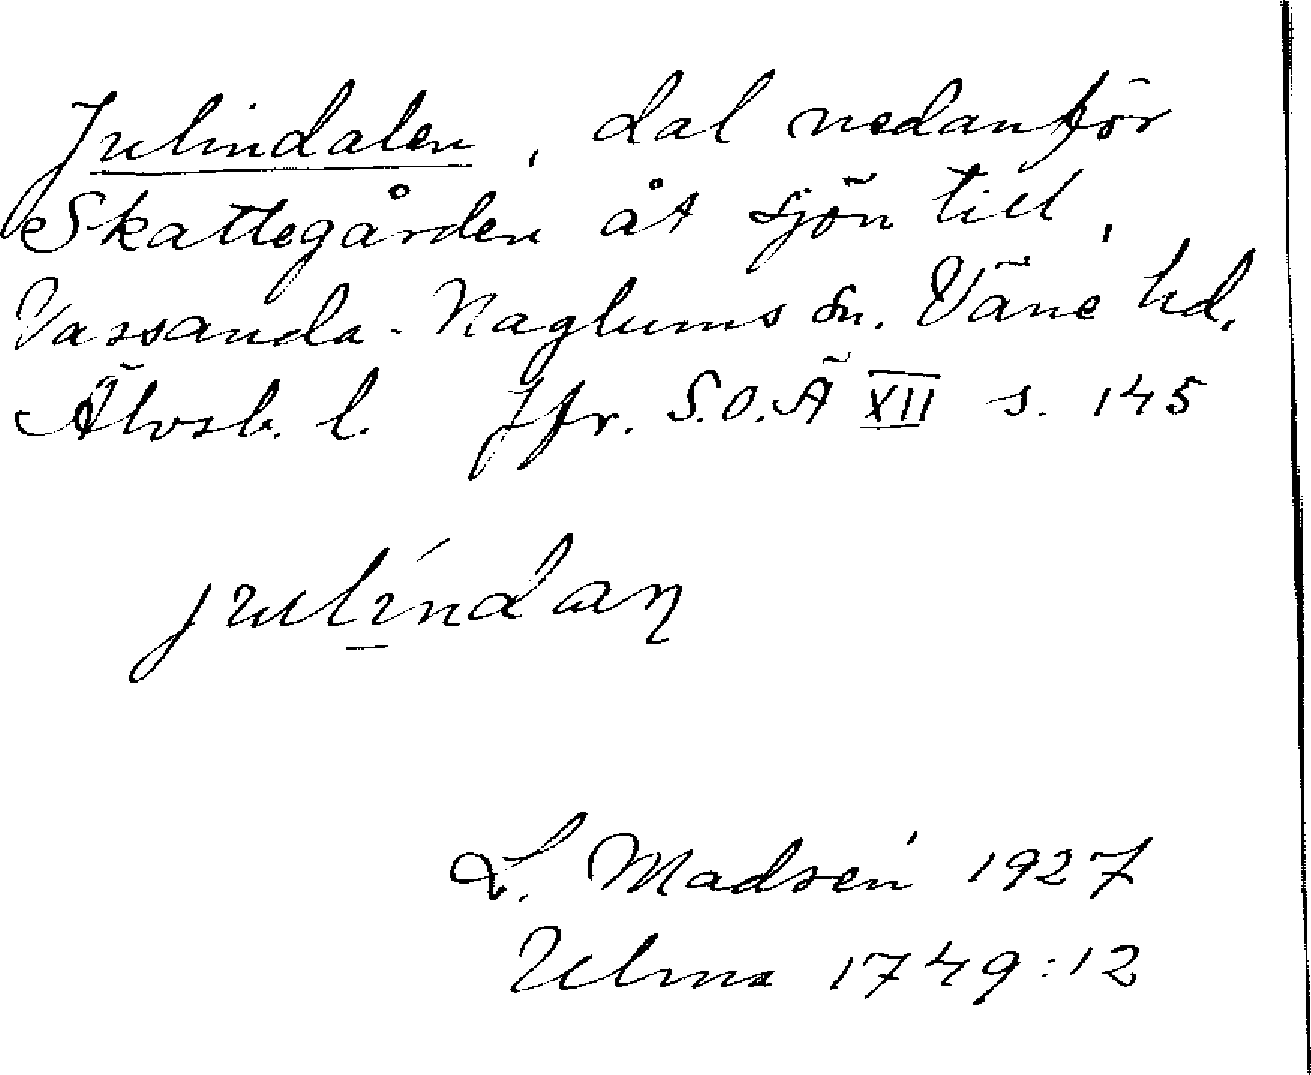 Julindalen, dal nedanför
Skattegården åt sjön till,
Vassanda-Naglums sn. Väne hd.
Älvsb. l. Jfr. S.O.Ä XII s. 145
julíndaɳ
L. Madsén 1927
Ulma 1749:12